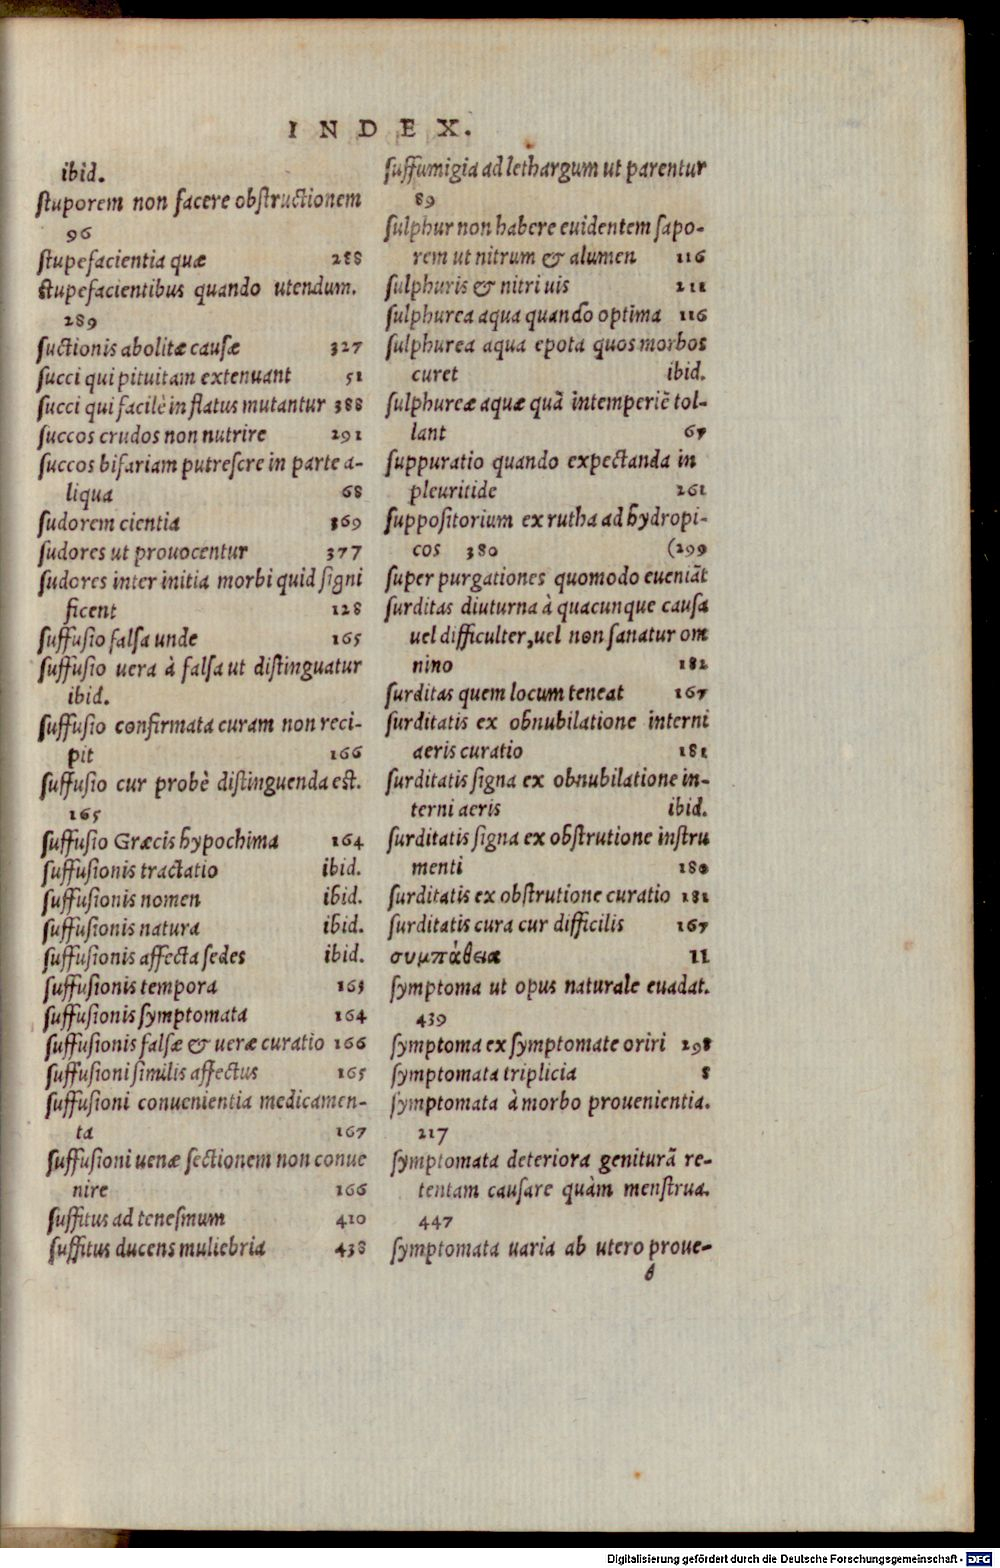 INDEX.
ibid.
stuporem non facere obstructionem
96
stupefacientia quæ 288
Stupefacientibus quando utendum.
289
suctionis abolitæ causæ 327
succi qui pituitam extenuant 51
succi qui facilè in flatus mutantur 388
succos crudos non nutrire 291
succos bifariam putrescre in parte a-
liqua 68
sudorem cientia 369
sudores ut prouocentur 377
sudores inter initia morbi quid signi
ficent 128
suffusio falsa unde 165
suffusio uera à falsa ut distinguatur
ibid.
suffusio confirmata curam non reci-
pit 166
suffusio cur probè distinguenda est.
165
suffusio Græcis hypochima 164
suffusionis tractatio ibid.
suffusionis nomen ibid.
suffusionis natura ibid.
suffusionis affecta sedes ibid.
suffusionis tempora 165
suffusionis symptomata 164
suffusionis falsæ & ueræ curatio 166
suffusioni similis affectus 165
suffusioni conuenientia medicamen-
ta 167
suffusioni uenæ sectionem non conue
nire 166
suffitus ad tenesmum 410
suffitus ducens muliebria 438
suffumigia ad lethargum ut parentur
89
sulphur non habere euidentem sapo-
rem ut nitrum & alumen 116
sulphuris & nitri uis 211
sulphurea aqua quando optima 116
sulphurea aqua epota quos morbos
curet ibid.
sulphureæ aquæ quã intemperiẽ tol-
lant 67
suppuratio quando expectanda in
pleuritide 261
suppositorium ex rutha ad hydropi-
cos 380 (299
super purgationes quomodo eueniãt
surditas diuturna à quacunque causa
uel difficulter, uel non sanatur om
nino 182
surditas quem locum teneat 167
surditatis ex obnubilatione interni
aeris curatio 181
surditatis signa ex obnubilatione in-
terni aeris ibid.
surditatis signa ex obstrutione instru
menti 180
surditatis ex obstrutione curatio 181
surditatis cura cur difficilis 167
συμπάθεια 11
symptoma ut opus naturale euadat.
439
symptoma ex symptomate oriri 298
symptomata triplicia 8
symptomata à morbo prouenientia.
217
symptomata deteriora geniturã re-
tentam causare quàm menstrua.
447
symptomata uaria ab utero proue-
b
Digitalisierung gefördert durch die Deutsche Forschungsgemeinschaft - DFG